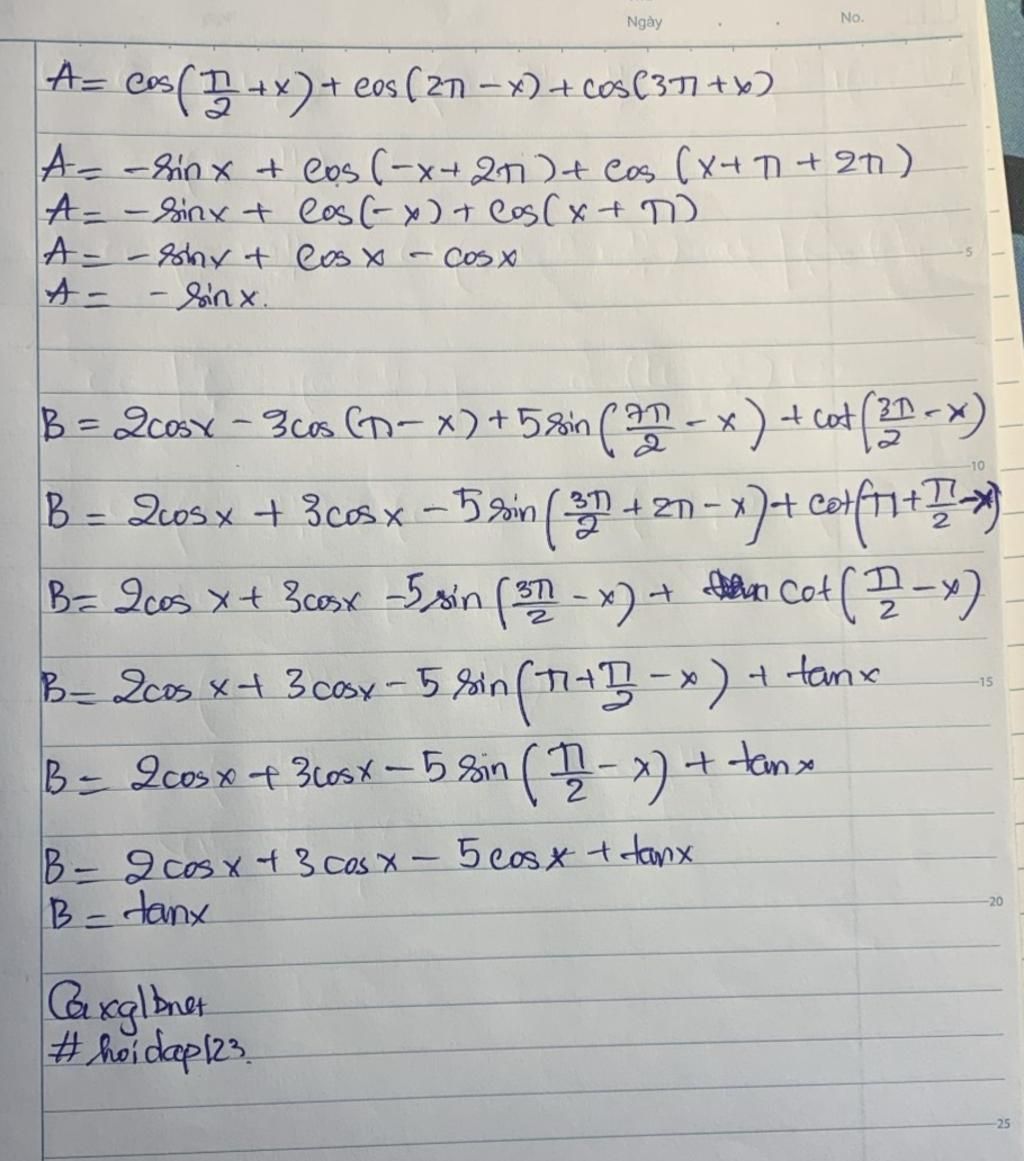 Ngày . . No.
A = cos(π/2 + x) + cos(2π - x) + cos(3π + x)
A = - sin x + cos (-x + 2π) + cos (x + π + 2π)
A = - sin x + cos(-x) + cos(x + π)
A = - sin x + cos x - cos x
5
A = - sin x.
B = 2cosx - 3cos (π - x) + 5 sin (7π/2 - x) + cot (3π/2 - x)
10
B = 2cosx + 3cosx - 5 sin (3π/2 + 2π - x) + cot(π + π/2 - x)
B = 2cos x + 3cosx - 5 sin (3π/2 - x) + cot (π/2 - x)
B = 2cos x + 3 cosx - 5 sin (π + π/2 - x) + tanx
15
B = 2cosx + 3cosx - 5 sin (π/2 - x) + tanx
B = 2cosx + 3cosx - 5cosx + tanx
B = tanx
20
# hoidap123.
25